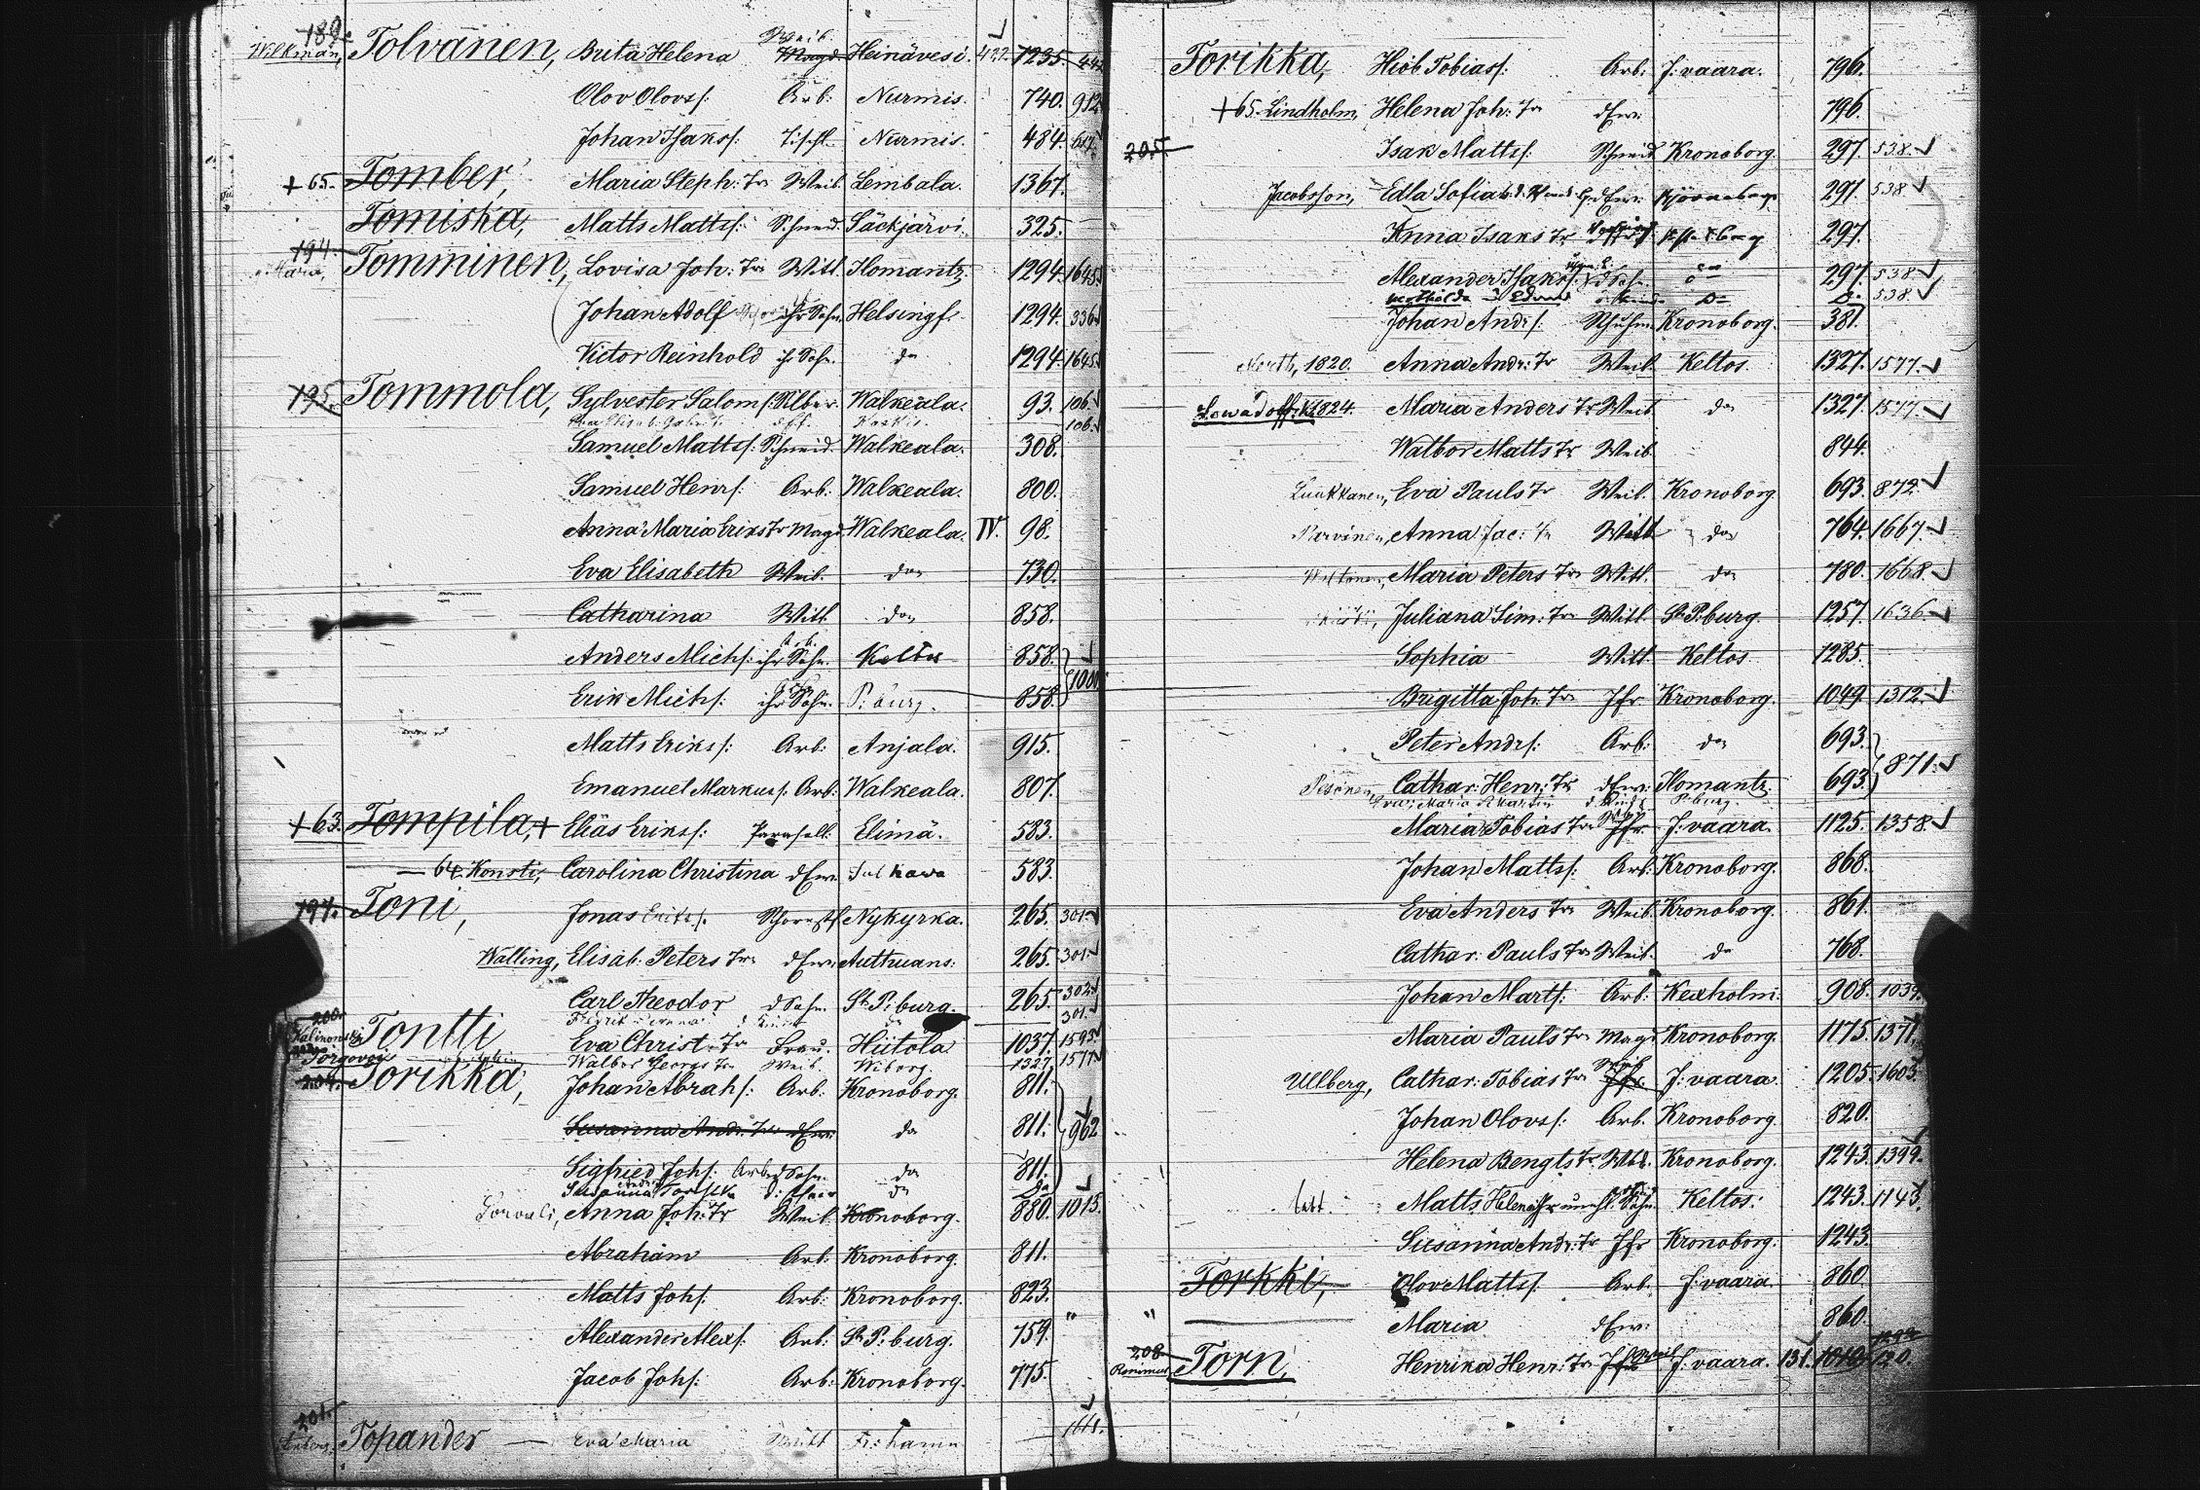 189.
Wilkman, Tolvanen, Brita Helena Weib. Magd. Heinävesi. 422. 1235. 442
Olov Olovs/: Arb: Nurmis. 740. 912
Johan Isaks/: Tischl. Nurmis. 484. 617.
+65. Tomber, Maria Steph: Tr Weib. Lembala. 1367.
Tomiska, Matts Matts/: Schneid. Säckjärvi. 325.
194.
Tomminen, Lovisa Joh: Tr Witt. Ilomantz. 1294. 1645.
Johan Adolf ihr Sohn. Helsingf. 1294. 336.
Victor Reinhold ihr Sohn. do 1294. 1645.
195. Tommola, Sylvester Salom/: Walkeala. 93. 106.
106.
Samuel Matts/: Schneid. Walkeala. 308.
Samuel Henr/: Arb. Walkeala. 800.
Anna Maria Eriks Tr Magd. Walkeala. IV. 98.
Eva Elisabeth Weib. do 730.
Catharina Witt. do 858.
Anders Mich/: ihr Sohn. Arb. Keltos 858.
1001.
Erik Mich/: ihr Sohn. P:burg. 858.
Matts Eriks/: Arb: Anjala. 915.
Emanuel Markus/: Arb: Walkeala. 807.
+63. Tompila, + Eliäs Eriks/: Elimä. 583.
64. Konsti, Carolina Christina dEw. Sulkawa 583.
197. Toni, Jonas Eriks/. Schornstf Nykyrka. 265. 301.
Walling, Elisab: Peters Tr dEw: Authuans: 265. 301.
Carl Theodor dSohn. St P:burg. 265. 302.
301.
200.
Kalinowski Tontti Eva Christ: Tr Frau. Hiitola 1037. 1593.
Torgovoi Walbor Georgs Tr Weib. Wiborg. 1327. 1577.
204. Torikka, Johan Abrah/: Arb: Kronoborg. 811.
Susanna Andr: Tr dEw: do 811. 962
Sigfried Joh/: Arb dSohn. do 811.
Susanna Torikka do do
Anna Joh: Tr Weib. Kronoborg. 880. 1013.
Abraham Arb: Kronoborg. 811.
Matts Joh/: Arb: Kronoborg. 823.
Alexander Alex/: Arb: St P:burg. 759. "
Jacob Joh/: Arb: Kronoborg. 775.
201.
Topander — Eva Maria Witt Fr:hamn 1661.
Torikka, Hiob Tobias/: Arb: J:vaara. 796.
+65. Lindholm, Helena Joh: Tr dEw: 796.
205. Isak Matts/: Schneid. Kronoborg. 297. 538.
Jacobsson, Edla Sofia dEw: Björneborg. 297. 538
Anna Isaks Tr 297.
Alexander Isaks/: dSohn. do 297. 538.
do Do 538.
Johan Andr/: Schuhm. Kronoborg. 381.
1820. Anna Andr: Tr Weib. Keltos. 1327. 1577.
1824. Maria Anders Tr Weib. do 1327. 1577.
Walbor Matts Tr Weib. 844.
Luukkanen, Eva Pauls Tr Weib. Kronoborg. 693. 872.
Parvinen, Anna Jac: Tr Witt do 764. 1667.
Maria Peters Tr Witt. do 780. 1668.
Juliana Sim: Tr Witt. St P:burg. 1257. 1636.
Sophia Witt. Keltos. 1285.
Brigitta Joh: Tr Jfr Kronoborg. 1049. 1312.
Peter Andr/: Arb: do 693.
871.
Pesonen, Cathar: Henr: Tr dEw: Ilomantz. 693.
P:burg.
Maria Tobias Tr Jfr. J:vaara. 1125. 1358.
Johan Matts/: Arb: Kronoborg. 868.
Eva Anders Tr Weib. Kronoborg. 861.
Cathar: Pauls Tr Weib. do 768.
Johan Mart/: Arb: Kexholm. 908. 1039.
Maria Pauls Tr Magd Kronoborg. 1175. 1371.
Ullberg, Cathar: Tobias Tr Weib. Jfr. J:vaara. 1205. 1603.
Johan Olovs/: Arb. Kronoborg. 820.
Helena Bengts Tr Kronoborg. 1243. 1399.
Matts Helena unehl. Sohn. Keltos: 1243. 1143.
Susanna Andr: Tr Jfr Kronoborg. 1243.
Torkki, Olov Matts/: Arb. J:vaara 860.
" Maria dEw: 860.
208 1292
Torn, Henrika Henr: Tr Jfr Weib J:vaara. 131. 1010. 120.